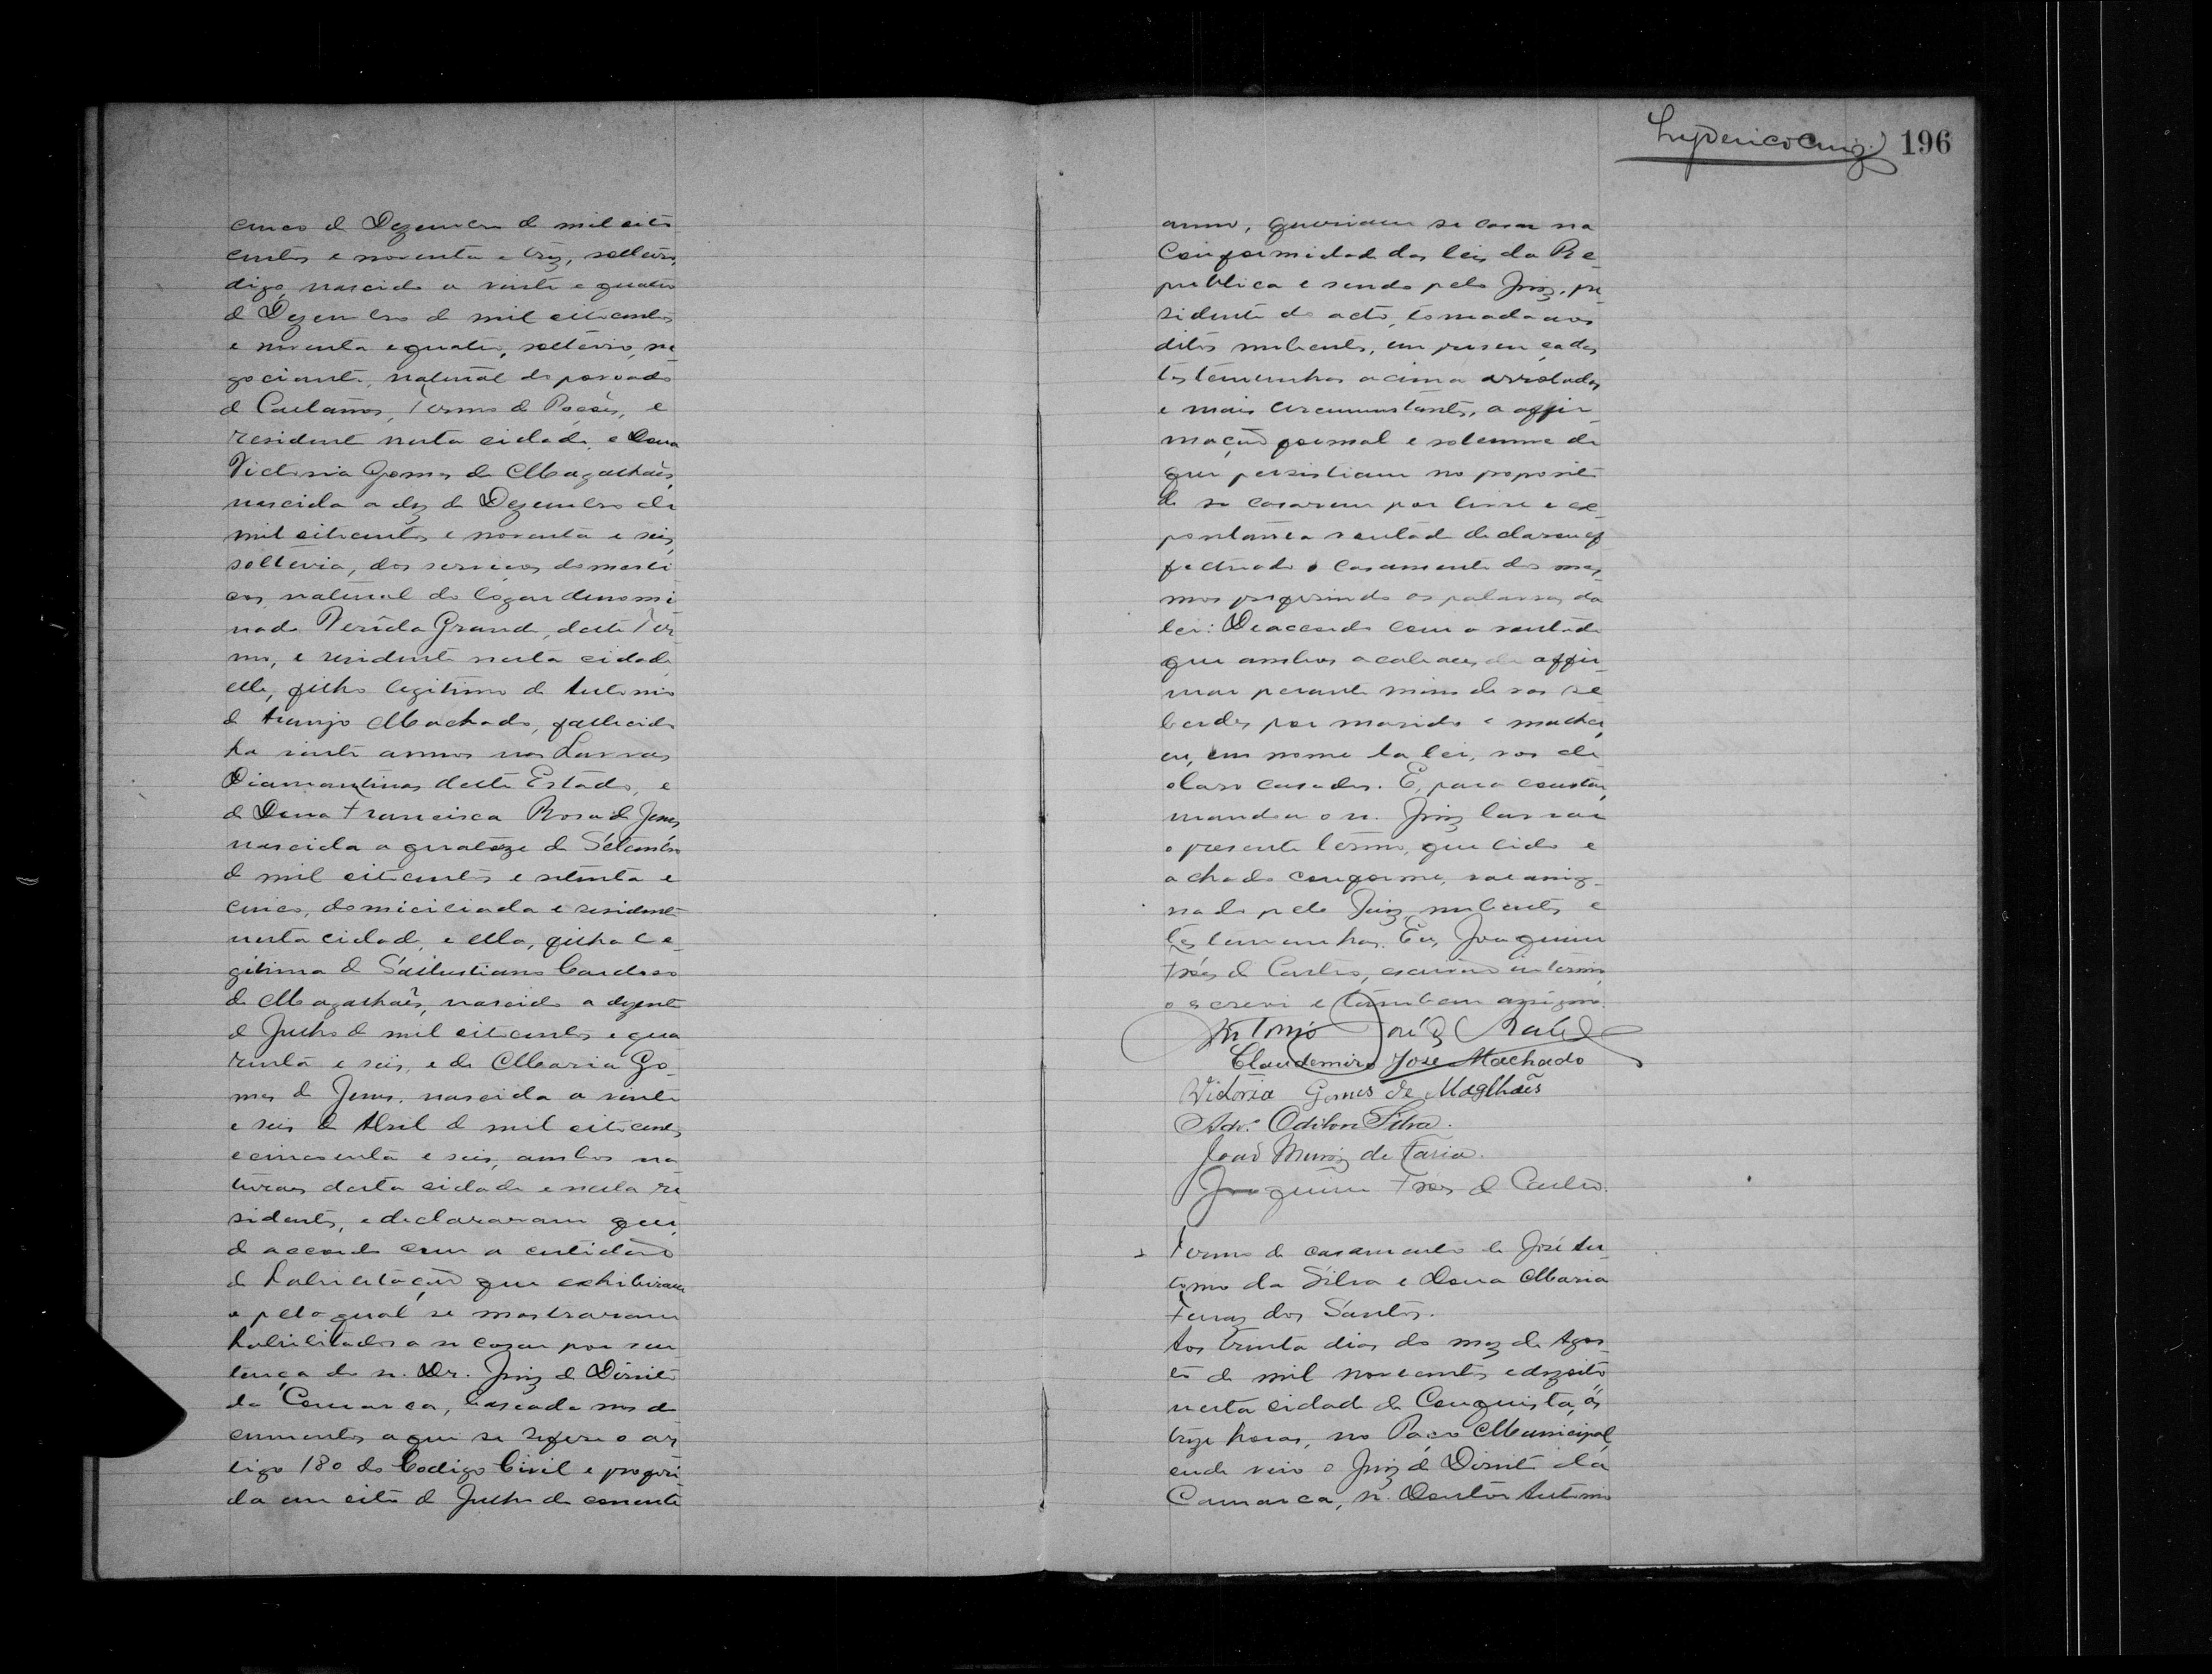 cinco de Dezembro de mil oito
centos e noventa e trez, solteiro,
digo, nascido a vinte e quatro
de Dezembro de mil oitocentos
e noventa e quatro, solteiro, ne
gociante, natural do povoado
de Caetanos, Termo de Poções, e
residente nesta cidade, e Dona
Victoria Gomes de Magalhães,
nascida a dez de Dezembro de
mil oitocentos e noventa e seis,
solteira, dos serviços domesti
cos, natural do logar denomi
nado Verêda Grande, deste Ter
mo, e residente nesta cidade
elle, filho legitimo de Antonio
de Araujo Machado, fallecido
ha vinte annos nas Lavras
Diamantinas deste Estado, e
de Dona Francisca Rosa de Jesus
nascida a quatorze de Setembro
de mil oitocentos e setenta e
cinco, domiciliada e residente
nesta cidade, e ella, filha le
gitima de Sallustiano Cardoso
de Magalhães, nascido a dezente
de Julho de mil oitocentos e qua
renta e seis, e de Maria Go
mes de Jesus, nascida a vinte
e seis de Abril de mil oitocentos
e cincoenta e seis, ambos na
turaes desta cidade e nesta re
sidentes, e declararam que,
de accordo com a certidão
de habilitação que exhibiram
e pelo qual se mostraram
habilitados a se casar por sen
tença do sr. Dr. Juiz de Direito
da Comarca, baseada nos do
cumentos a que se refere o ar
tigo 180 do Codigo Civil e proferi
da em oito de Julho do corrente
Lyderico Cruz 196
anno, queriam se casar na
Conformidade das leis da Re
publica e sendo pelo Juiz, pre
sidente do acto, tomada aos
ditos nubentes, em presença das
testemunhas acima arroladas
e mais circumstantes, a affir
mação formal e solemne de
que persistiam no proposito
de se casarem por livre e es
pontanea vontade declarou ef
fectuado o casamento dos mes
mos proferindo as palavras da
lei: De accordo com a vontade
que ambos acabaes de affir
mar perante mim de vos re
ceberdes por marido e mulher,
eu, em nome da lei, vos de
claro casados. E, para constar,
mandou o sr. Juiz lavrar
o presente termo, que lido e
achado conforme, vae assig
nado pelo Juiz, nubentes e
testemunhas. Eu, Joaquim
Fróes de Castro, escrivão interino,
o escrevi e tambem assigno.
Antonio José
Claudemiro Jose Machado
Victoria Gomes de Maglhães
Adv.º Odilon Silva.
João Muniz de Faria.
Joaquim Fróes de Castro.
Termo de casamento de José An
tonio da Silva e Dona Maria
Ferraz dos Santos.
Aos trinta dias do mez de Agos
to de mil novecentos e dezoito,
nesta cidade de Conquista, ás
treze horas, no Paço Municipal,
onde veio o Juiz de Direito da
Comarca, sr. Doutor Antonio